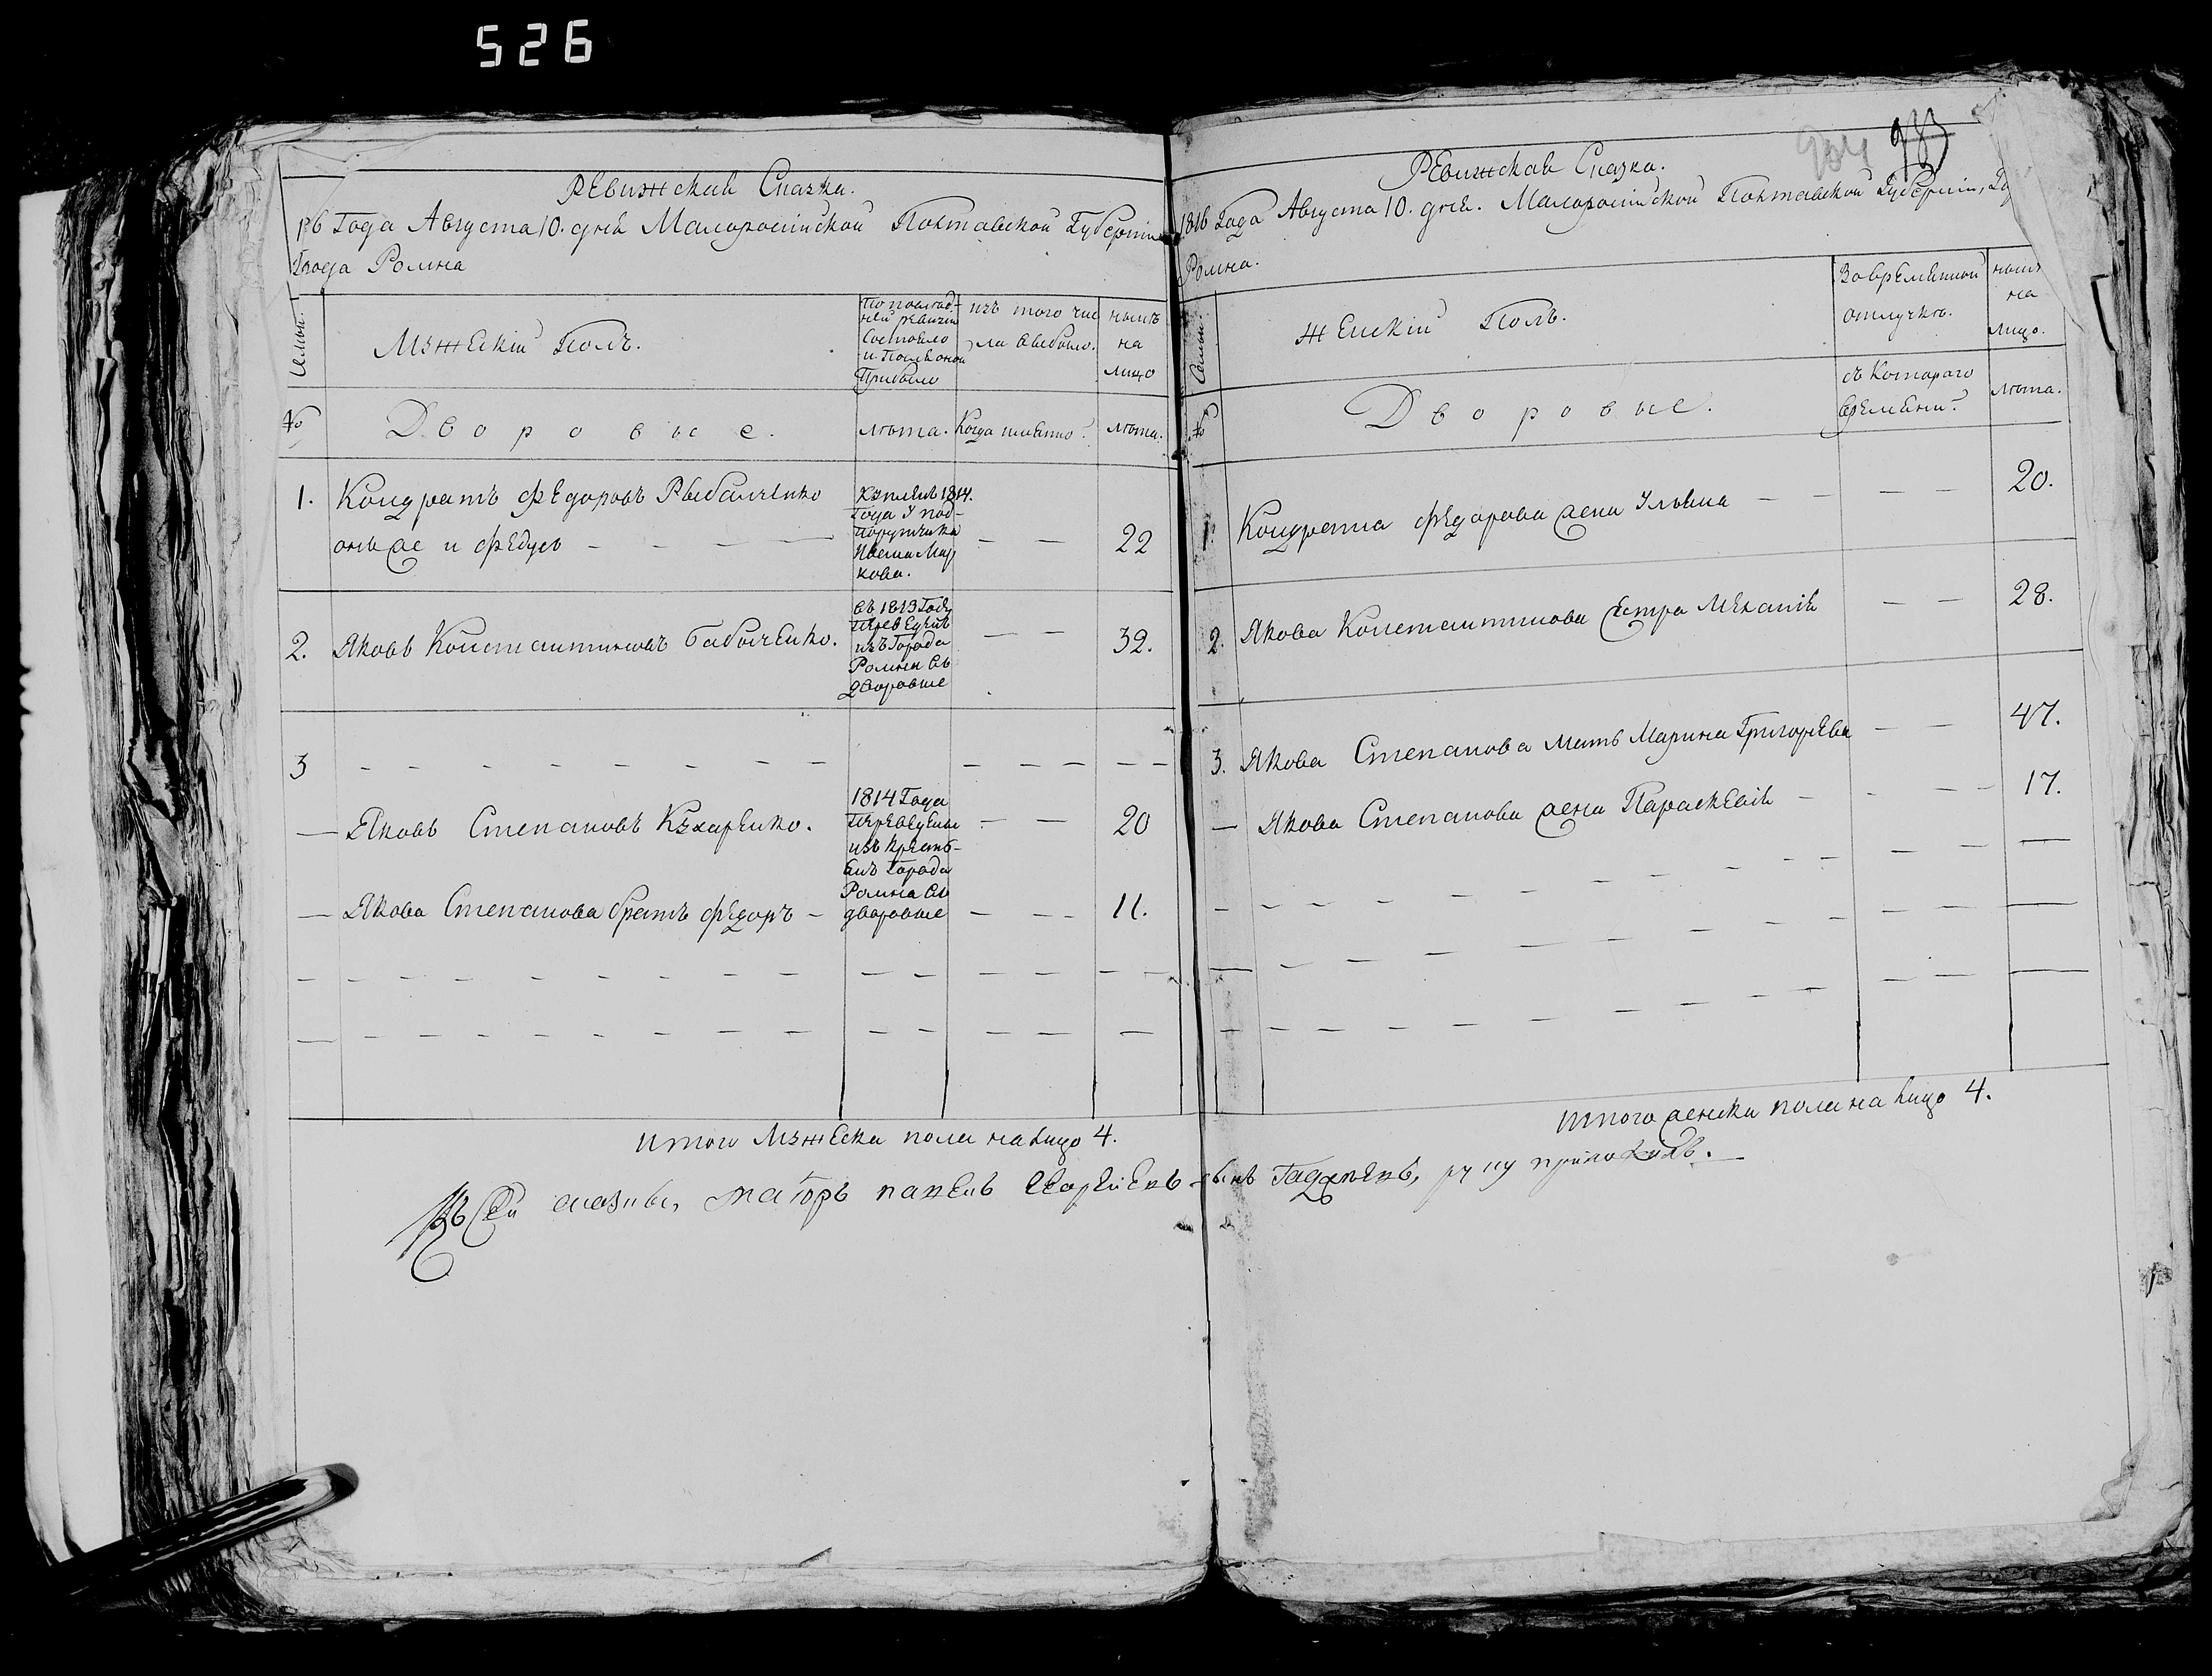 526
983
Ревижская Сказка.
1816 Года Августа 10. дня Малоросiйской Полтавской Губернiи
Города Ромна
Мужескiй Полъ.
По послед-
ней ревизiи
Состояло
и После оной
Прибыло
изъ того чис
ла выбыло.
нынѣ
на
лицо
№
Дворовые.
лѣта.
Когда имянно?
лѣта.
1. Кондратъ Федоровъ Рыбалченко
онъ же и Федусь
Купленъ 1814.
Года У под-
поручика
Ивана Мар
кова.
22
2. Яковъ Константиновъ Бабыченко.
въ 1813 Году
Переведенъ
изъ Города
Ромна въ
дворовые
32.
3
Яковъ Степановъ Кухаренко.
20
1814 Года
Переведены
изъ Крестъ-
янъ Города
Ромна въ
дворовые
Якова Степанова братъ Федоръ
11.
Итого Мужеска пола на лицо 4.
Ревижская Сказка.
1816 Года Августа 10. дня. Малоросiйской Полтавской Губернiи,
Ромна.
Семьи.
Женскiй Полъ.
Во временной
отлучке.
нынѣ
на
лицо.
№
Дворовые.
съ Котораго
времени?
лѣта.
1. Кондрата Федорова жена Ульяна
20.
2. Якова Константинова сестра Меланiя
28.
3. Якова Степанова мать Марина Григорьева
47.
Якова Степанова жена Параскевiя
17.
Итого женска пола на лицо 4.
Къ сей сказки, маiоръ павелъ сынъ руку приложилъ.